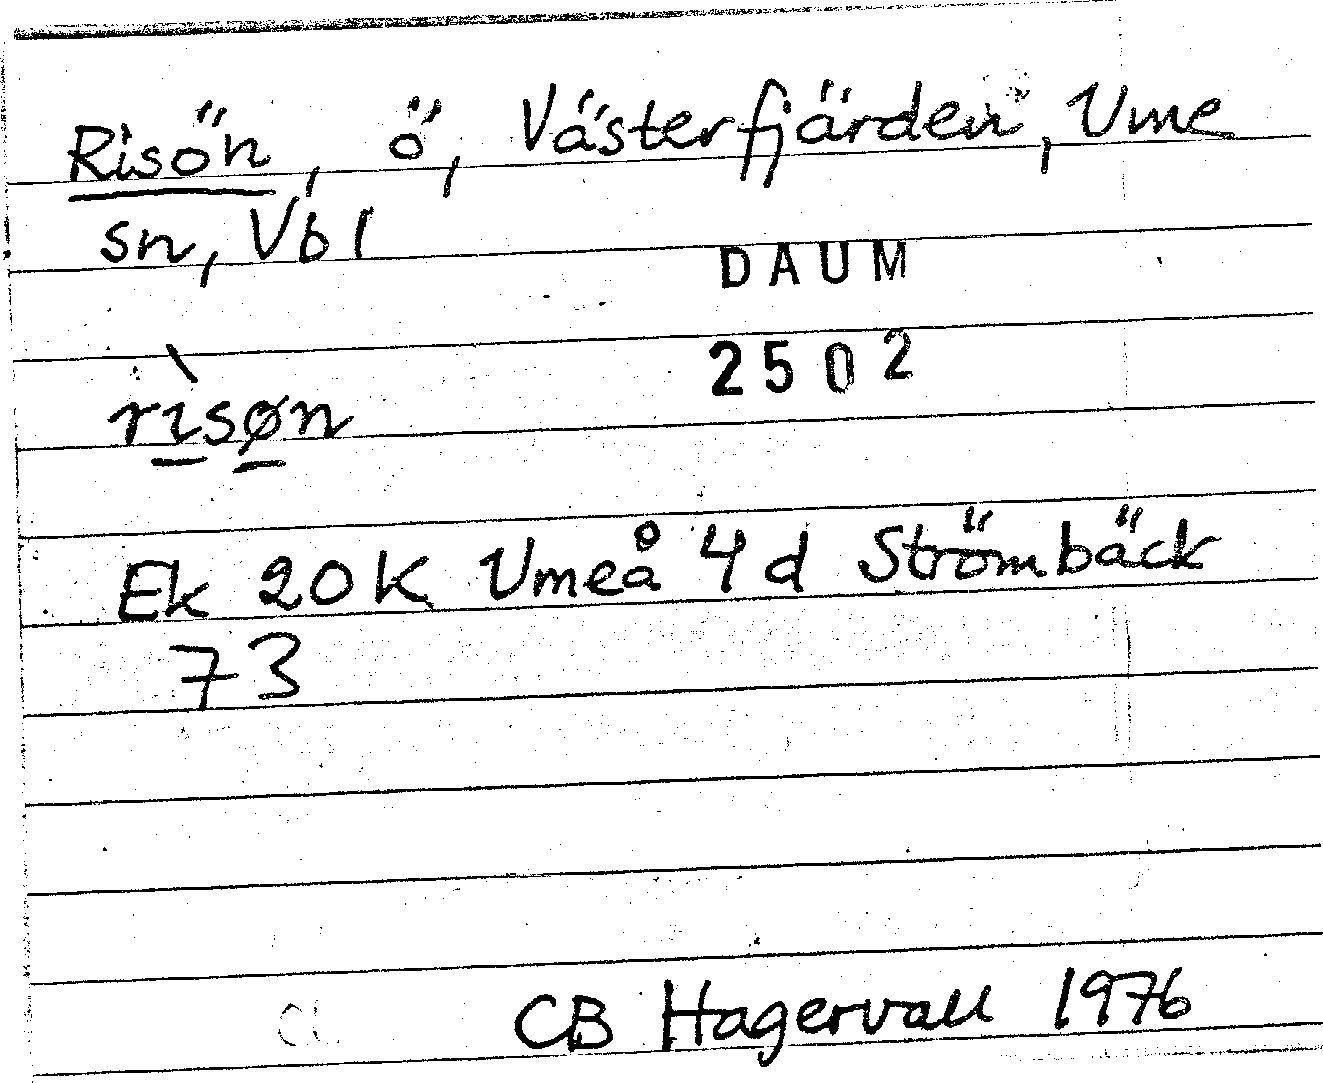 Risön, ö, Västerfjärden, Ume
sn, Vbl
DAUM
2502
rìsøn
Ek 20K Umeå 4d Strömbäck
73
CB Hagervall 1976